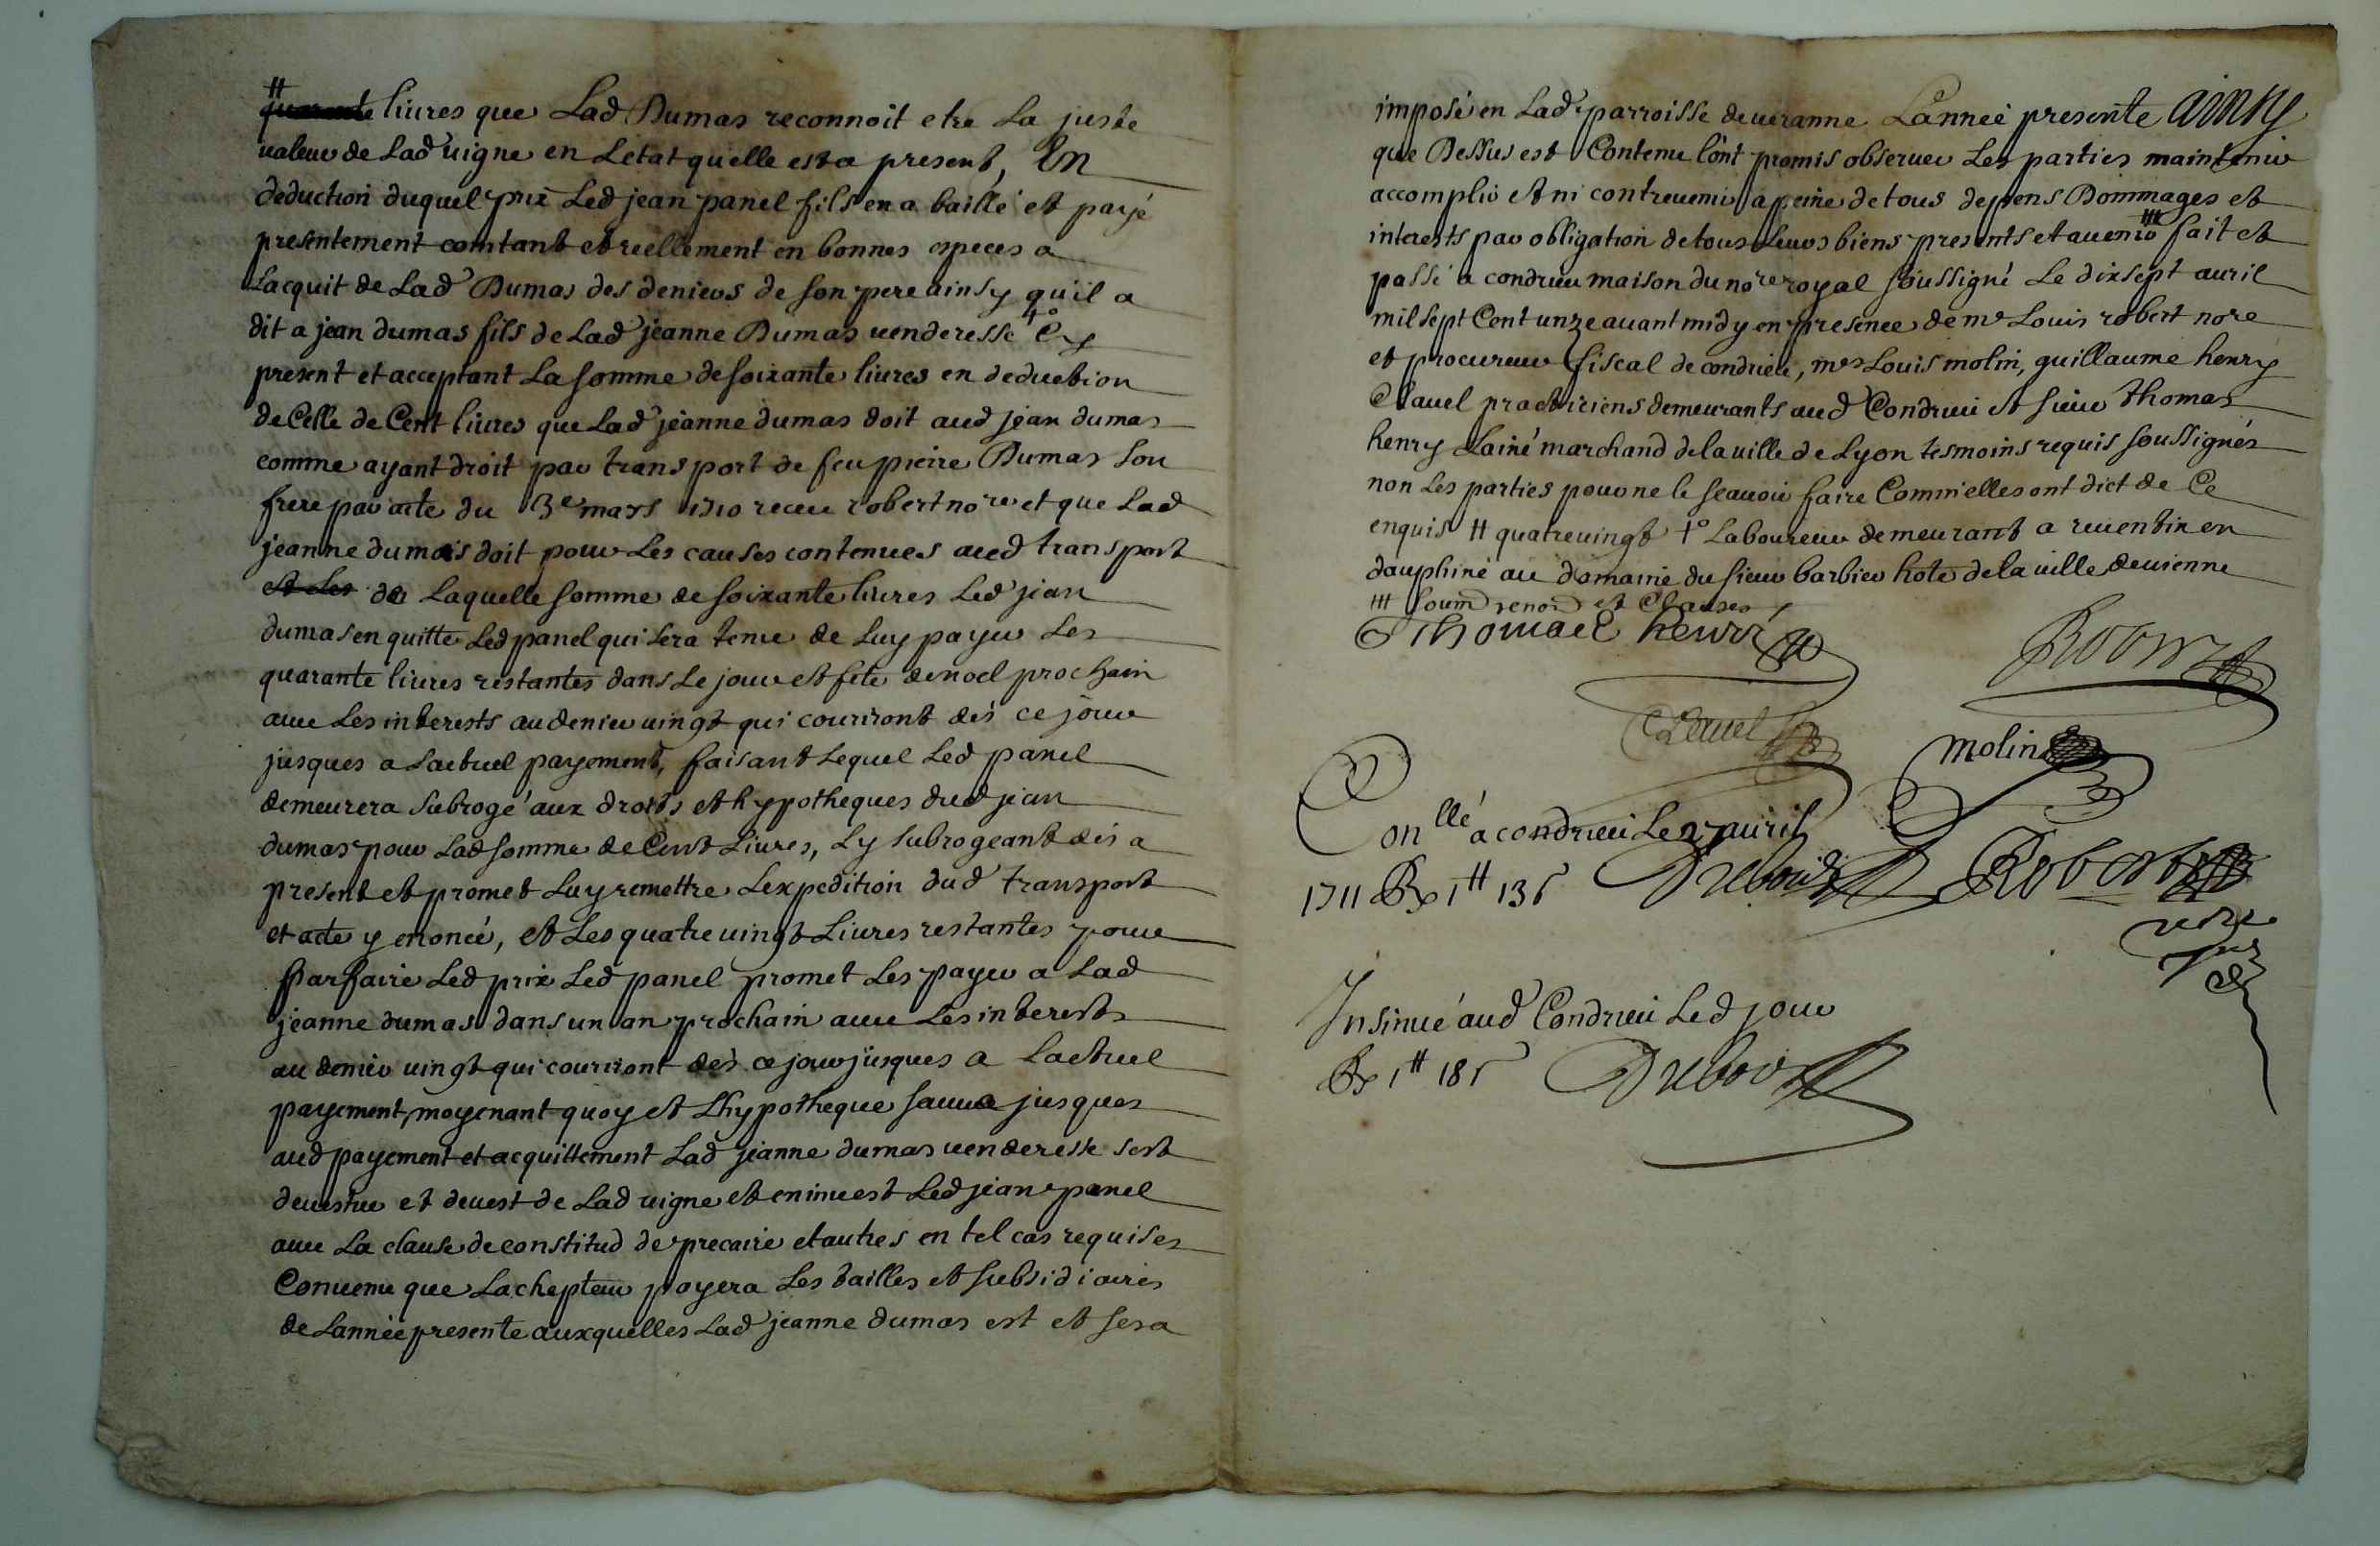 # quarante livres que Lad Dumas reconnoit etre La juste
valeur de Lad vigne en Letat quelle est a present, En
deduction duquel prix Led jean panel fils en a baillé et payé
presentement comtant et reellement en bonnes especes a
Lacquit de Lad Dumas des deniers de son pere ainsy qu'il a
dit a jean dumas fils de Lad jeanne Dumas venderesse 1º Cy
present et acceptant La somme de soixante livres en deduction
de Celle de Cent livres que Lad jeanne dumas doit aud jean dumas
comme ayant droit par transport de feu pierre Dumas son
frere par acte du 3e mars 1710 receu robert nore et que Lad
jeanne dumas doit pour Les causes contenues aud transport
et Les de Laquelle somme de soixante livres Led jean
dumas en quitte Led panel qui sera tenu de Luy payer Les
quarante livres restantes dans Le jour et fete de noel prochain
avec Les interests au denier vingt qui courront dés ce jour
jusques a Lactuel payement, faisant Lequel Led panel
demeurera subrogé aux droits et hypotheques dud jean
dumas pour Lad somme de Cent Livres, Ly subrogeant dés a
present et promet Luy remettre Lexpedition dud transport
et acte y enoncé, et Les quatre vingt Livres restantes pour
parfaire Led prix Led panel promet Les payer a Lad
jeanne dumas dans un an prochain avec Les interests
au denier vingt qui courront dés ce jour jusques a Lactuel
payement, moyenant quoy et Lhypotheque sauve jusques
aud payement et acquittement Lad jeanne dumas venderesse sest
devestue et devest de Lad vigne et en invest Led jean panel
avec La clause de constitud de precaire et autres en tel cas requises
Convenu que Lachepteur payera Les tailles et subsidiaires
de Lannée presente auxquelles Lad jeanne dumas est et sera
imposé en Lad parroisse de veranne Lannee presente ainsy
que Dessus est Contenu lont promis observer Les parties maintenir
accomplir et ni contrevenir a peine de tous depens Dommages et
interests par obligation de tous Leurs biens presents et avenir ### fait et
passé a condrieu maison du nore royal soussigné Le dixsept avril
mil sept Cent unze avant midy en presence de me Louis robert nore
et procureur fiscal de condrieu, mes Louis molin, guillaume henry
Clavel practiciens demeurants aud Condrieu et sieur thomas
henry Lainé marchand de la ville de Lyon tesmoins requis soussignés
non Les parties pour ne le scavoir faire Comm'elles ont dict de Ce
enquis # quatre vingt 1º Laboureur demeurant a reventin en
dauphiné au domaine du sieur barbier hote de la ville de vienne
### soum renon et Clauses
Thomas henri
Robert
Clavel
molin
Conllé a condrieu Le 27 avril
1711 Rx 1# 13s
Dubois
Robert
nore
Insinué aud Condrieu Led jour
Rx 1# 18s
Dubois